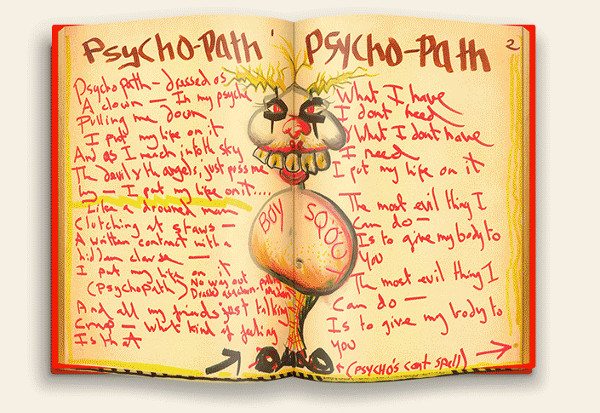 Psycho-Path'
Psychopath - dressed as
A clown - In my psyche
Pulling me down
I put my life on it
And as I reach into the sky
The devil y th angels, just pass me
by - I put my life on it....
Like a drowned man
Clutching at straws -
A written contract with a
hidden clause -
I put my life on it
(Psychopath) No way out - pulling
Dressed as a clown - me down
And all my friends just talking
Crap - What kind of feeling
Is that
BOY
PSYCHO-PATH
2
What I have
I don't need
What I don't have
I need
I put my life on it
The most evil thing I
Can do -
Is to give my body to
you
The most evil thing I
Can do -
Is to give my body to
you
(psycho's cant spell)